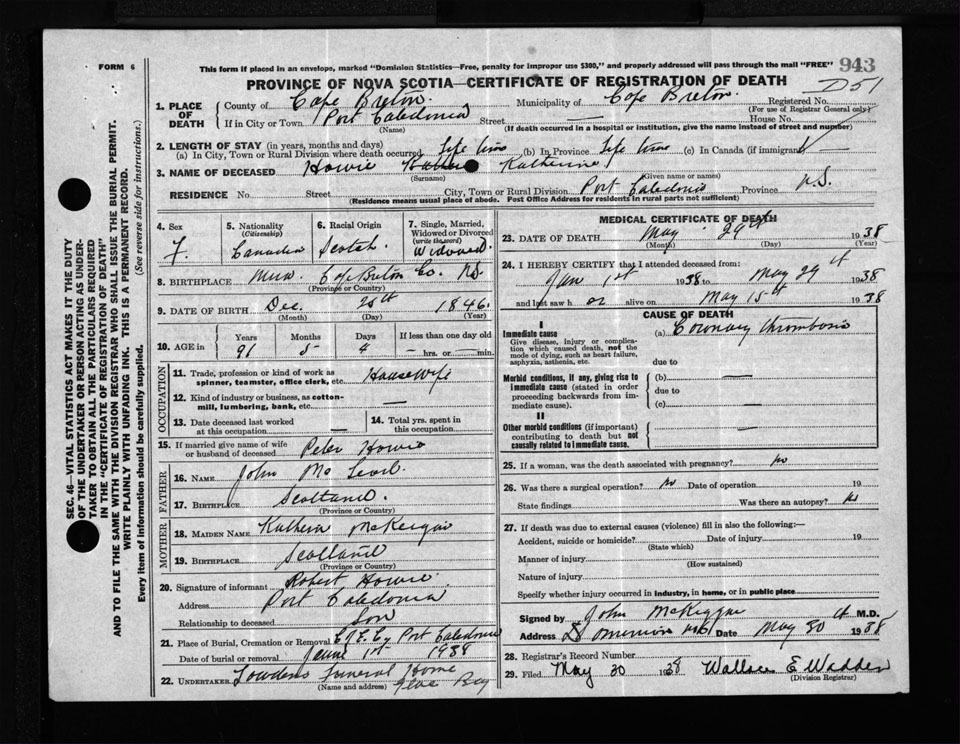 FORM 6
This form if placed in an envelope, marked "Dominion Statistics—Free, penalty for improper use $300," and properly addressed will pass through the mail "FREE"
943
PROVINCE OF NOVA SCOTIA—CERTIFICATE OF REGISTRATION OF DEATH
D51
1. PLACE OF DEATH
County of Cape Breton. Municipality of Cape Breton. Registered No.
(For use of Registrar General only)
If in City or Town Port Caledonia Street — House No.
(Name) (If death occurred in a hospital or institution, give the name instead of street and number)
2. LENGTH OF STAY (in years, months and days)
(a) In City, Town or Rural Division where death occurred Life time (b) In Province Life time (c) In Canada (if immigrant) —
3. NAME OF DECEASED Howie Katherine
(Surname) (Given name or names)
RESIDENCE No. Street City, Town or Rural Division Port Caledonia Province N.S.
(Residence means usual place of abode. Post Office Address for residents in rural parts not sufficient)
4. Sex F.
5. Nationality (Citizenship) Canadian
6. Racial Origin Scotch
7. Single, Married, Widowed or Divorced (write the word) Widowed.
8. BIRTHPLACE Mira Cape Breton Co. N.S.
(Province or Country)
9. DATE OF BIRTH Dec. 25th 1846.
(Month) (Day) (Year)
10. AGE in Years Months Days If less than one day old
91 5 4 — hrs. or — min.
OCCUPATION
11. Trade, profession or kind of work as spinner, teamster, office clerk, etc. Housewife
12. Kind of industry or business, as cotton-mill, lumbering, bank, etc. —
13. Date deceased last worked at this occupation —
14. Total yrs. spent in this occupation
15. If married give name of wife or husband of deceased Peter Howie
FATHER
16. NAME John McLeod.
17. BIRTHPLACE Scotland.
(Province or Country)
MOTHER
18. MAIDEN NAME McKeigan
19. BIRTHPLACE Scotland
(Province or Country)
20. Signature of informant Robert Howie.
Address Port Caledonia
Relationship to deceased Son
21. Place of Burial, Cremation or Removal Port Caledonia
Date of burial or removal June 1st 1938
22. UNDERTAKER Funeral Home
(Name and address) Glace Bay
MEDICAL CERTIFICATE OF DEATH
23. DATE OF DEATH May 29th 1938
(Month) (Day) (Year)
24. I HEREBY CERTIFY that I attended deceased from:
Jan 1st 1938 to May 29th 1938
and last saw her alive on May 15th 1938
CAUSE OF DEATH
I
Immediate cause (a) Coronary thrombosis
Give disease, injury or complication which caused death, not the mode of dying, such as heart failure, asphyxia, asthenia, etc.
due to
Morbid conditions, if any, giving rise to immediate cause (stated in order proceeding backwards from immediate cause).
(b) —
due to
(c) —
II
Other morbid conditions (if important) contributing to death but not causally related to immediate cause.
—
25. If a woman, was the death associated with pregnancy? No
26. Was there a surgical operation? No Date of operation 19
State findings Was there an autopsy? No
27. If death was due to external causes (violence) fill in also the following:—
Accident, suicide or homicide? Date of injury 19
(State which)
Manner of injury
(How sustained)
Nature of injury
Specify whether injury occurred in industry, in home, or in public place
Signed by John McKiggan M.D.
Address Dominion Date May 30th 1938
28. Registrar's Record Number
29. Filed May 30 1938 Wallace E Wadden
(Division Registrar)
SEC. 46—VITAL STATISTICS ACT MAKES IT THE DUTY
OF THE UNDERTAKER OR PERSON ACTING AS UNDER-
TAKER TO OBTAIN ALL THE PARTICULARS REQUIRED
IN THE "CERTIFICATE OF REGISTRATION OF DEATH"
AND TO FILE THE SAME WITH THE DIVISION REGISTRAR WHO SHALL ISSUE THE BURIAL PERMIT.
WRITE PLAINLY WITH UNFADING INK. THIS IS A PERMANENT RECORD.
Every item of information should be carefully supplied. (See reverse side for instructions.)